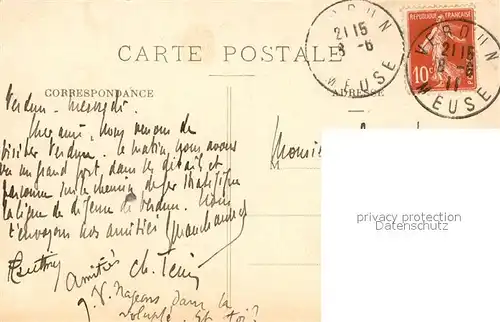 CARTE POSTALE
CORRESPONDANCE
ADRESSE
VERDUN
21 15
8 - 6
MEUSE
REPUBLIQUE FRANÇAISE
10c
VERDUN
21 15
8 - 6
11
MEUSE
Verdun. mercredi.
Cher ami, nous venons de
visiter Verdun. Le matin, nous avons
vu un grand fort, dans les détails et
parcouru sur le chemin de fer stratégique
la ligne de défense de Verdun. Nous
t'envoyons nos amitiés
Amitiés
J. V. Nageons dans la
volupté. Et toi?
M
Monsieur
privacy protection
Datenschutz